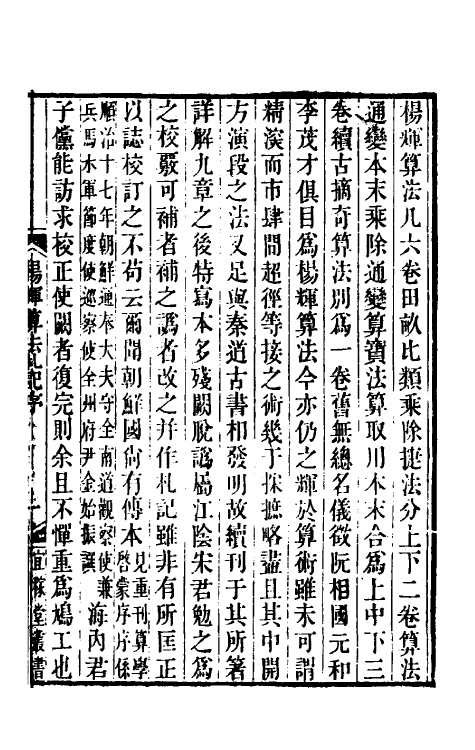 楊輝算法凡六卷田畝比類乘除捷法分上下二卷算法
通變本末乘除通變算寶法算取用本末合爲上中下三
卷續古摘奇算法別爲一卷舊無總名儀徵阮相國元和
李茂才俱目爲楊輝算法今亦仍之輝於算術雖未可謂
精深而市肆間超徑等接之術幾于採摭略盡且其中開
方演段之法又足與秦道古書相發明故續刊于其所著
詳解九章之後特寫本多殘闕脫譌屬江陰宋君勉之爲
之校覈可補者補之譌者改之并作札記雖非有所匡正
以誌校訂之不苟云爾聞朝鮮國尙有傳本見重刊算學
啓蒙序序係
順治十七年朝鮮通奉大夫守全南道觀察使兼
兵馬水軍節度使巡察使全州府尹金始振譔
海內君
子儻能訪求校正使闕者復完則余且不憚重爲鳩工也
楊輝算法札記序
宜稼堂叢書